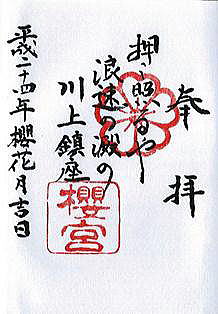 奉拝
押し照るや
浪速の澱の
川上鎮座
櫻宮
平成二十四年櫻花月吉日